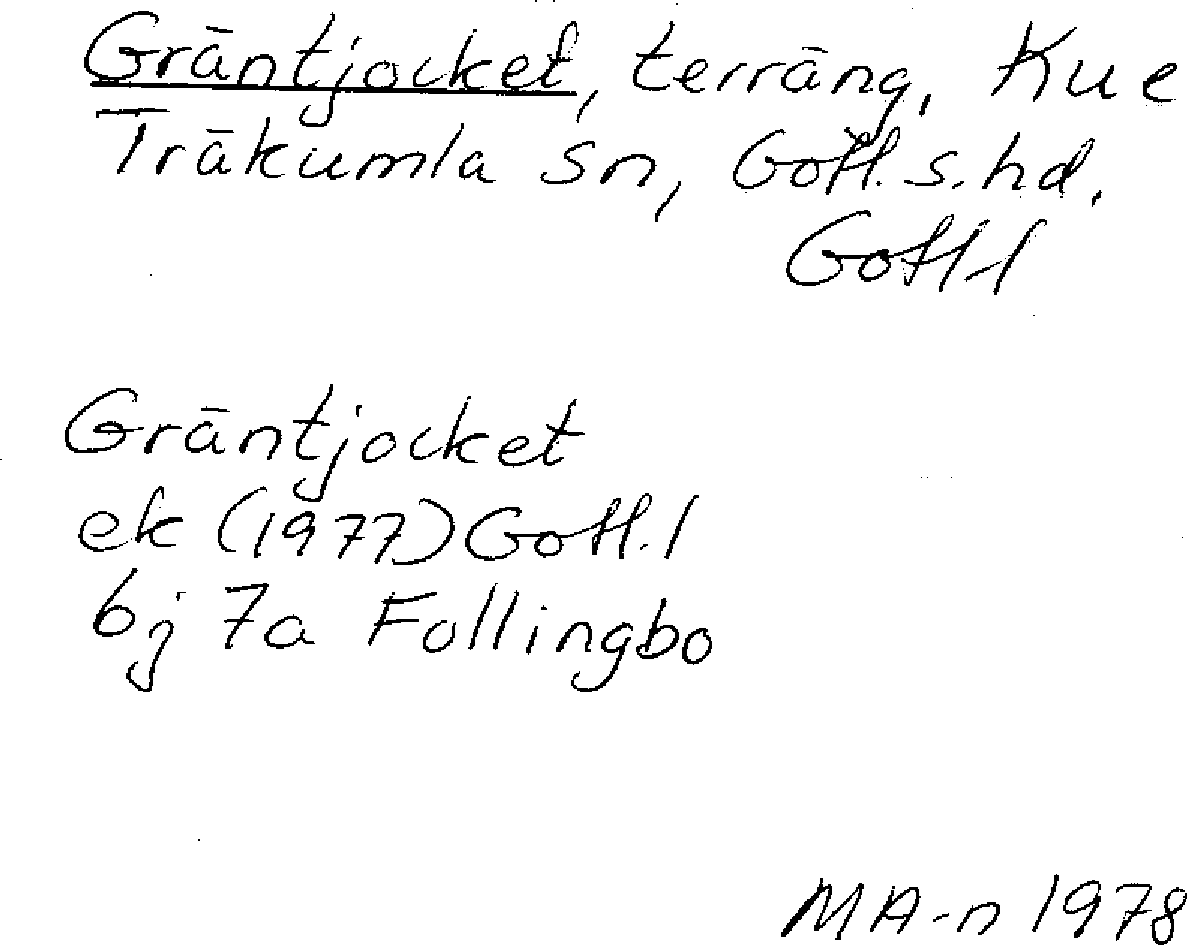 Gräntjocket, terräng, Kue
Träkumla sn, Gotl. s. hd.
Gotl. l
Gräntjocket
ek (1977) Gotl. l
6j 7a Follingbo
MA-n 1978